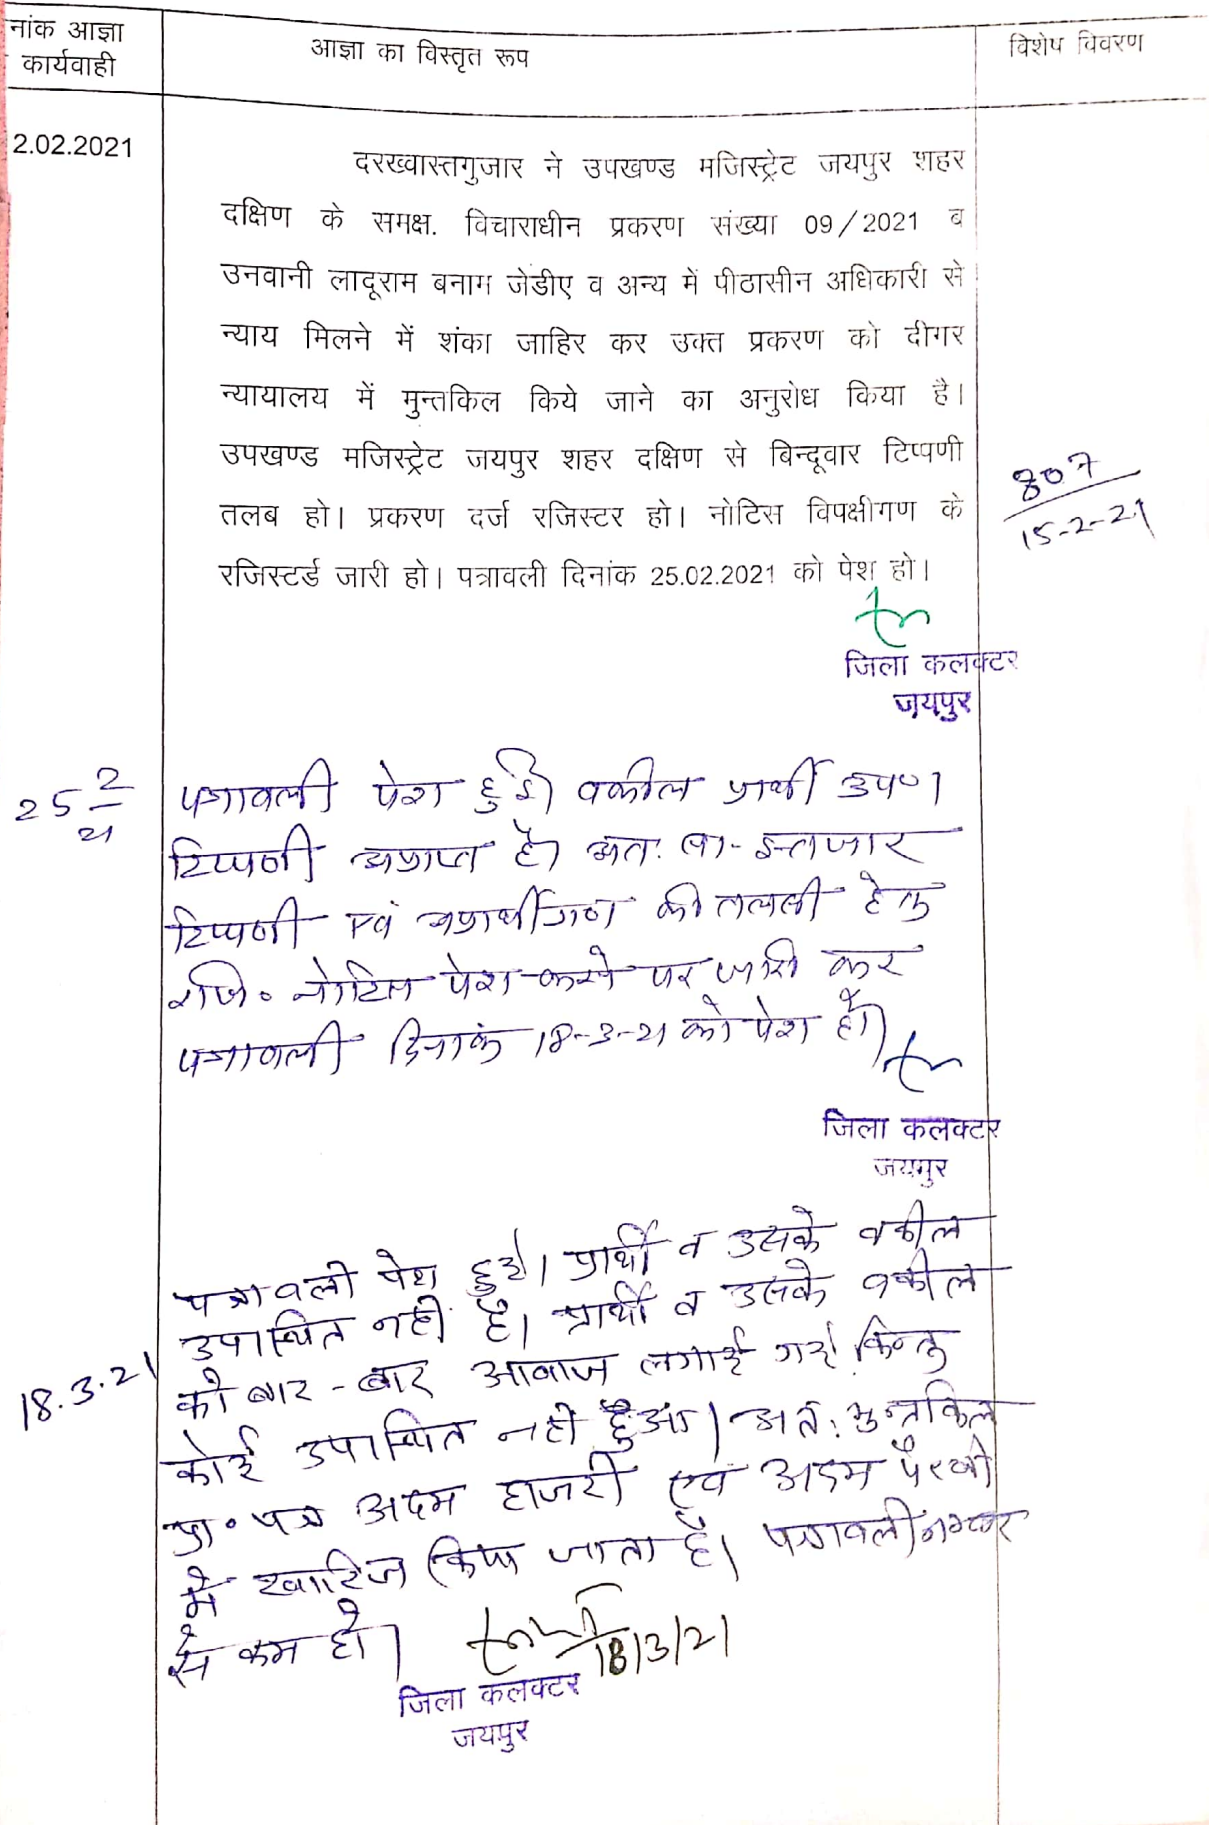 नांक आज्ञा
कार्यवाही
आज्ञा का विस्तृत रूप
विशेष विवरण
2.02.2021
दरख्वास्तगुजार ने उपखण्ड मजिस्ट्रेट जयपुर शहर
दक्षिण के समक्ष. विचाराधीन प्रकरण संख्या 09/2021 ब
उनवानी लादूराम बनाम जेडीए व अन्य में पीठासीन अधिकारी से
न्याय मिलने में शंका जाहिर कर उक्त प्रकरण को दीगर
न्यायालय में मुन्तकिल किये जाने का अनुरोध किया है।
उपखण्ड मजिस्ट्रेट जयपुर शहर दक्षिण से बिन्दूवार टिप्पणी
तलब हो। प्रकरण दर्ज रजिस्टर हो। नोटिस विपक्षीगण के
रजिस्टर्ड जारी हो। पत्रावली दिनांक 25.02.2021 को पेश हो।
807
15-2-21
जिला कलक्टर
जयपुर
25 2/21
पत्रावली पेश हुई। वकील प्रार्थी उप०।
टिप्पणी अप्राप्त है। अतः बा-इन्तजार
टिप्पणी एवं अप्रार्थीगण की तलबी हेतु
रजि० नोटिस पेश करने पर जारी कर
पत्रावली दिनांक 18-3-21 को पेश हो।
जिला कलक्टर
जयपुर
18.3.21
पत्रावली पेश हुई। प्रार्थी व उसके वकील
उपस्थित नहीं है। प्रार्थी व उसके वकील
को बार-बार आवाज लगाई गई किन्तु
कोई उपस्थित नहीं हुआ। अतः मुन्तकिल
प्रा० पत्र अदम हाजरी एवं अदम पैरवी
में खारिज किया जाता है। पत्रावली नम्बर
से कम हो।
18/3/21
जिला कलक्टर
जयपुर